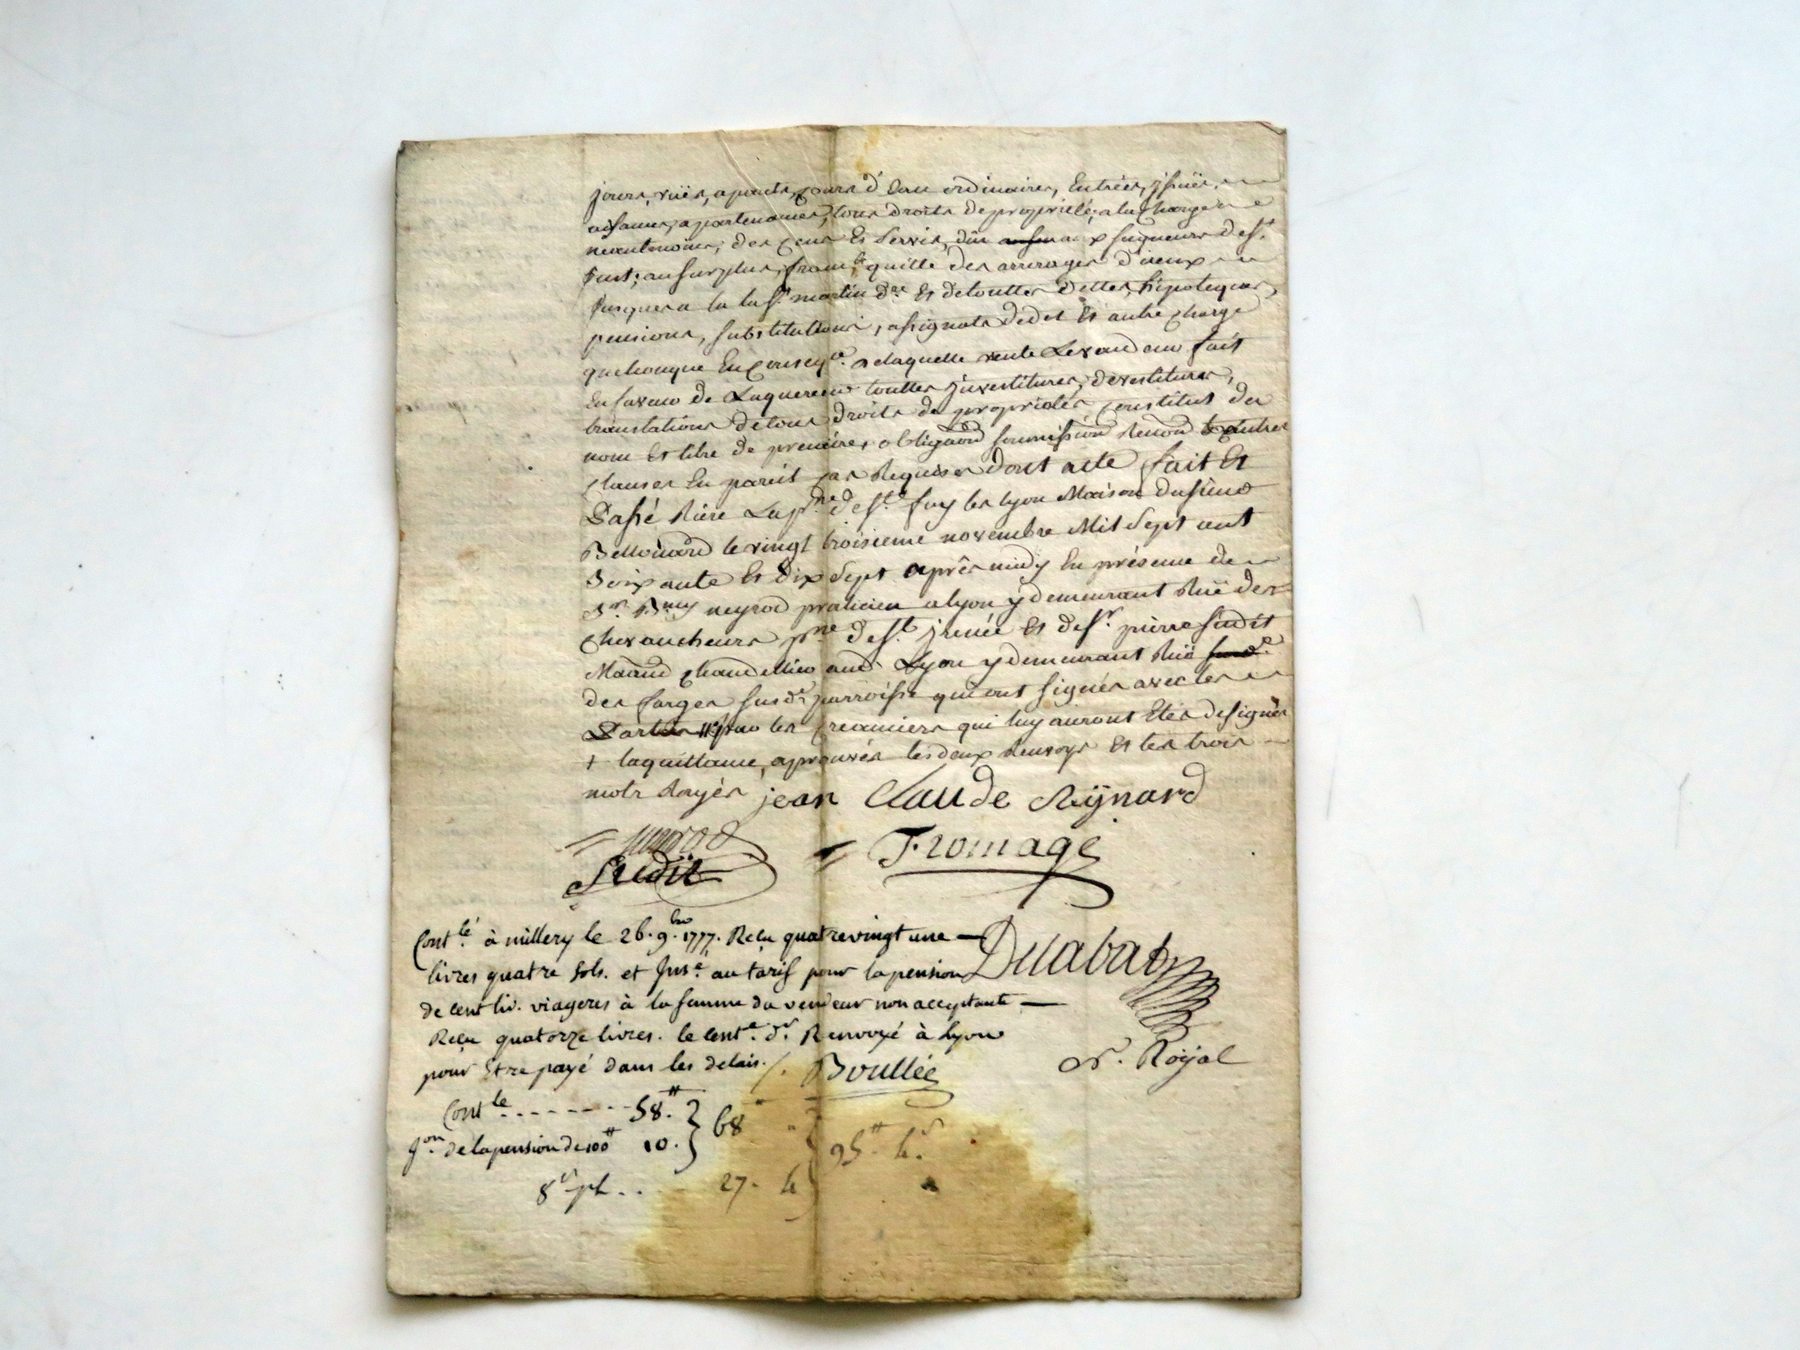 jours, vües, aparts, cours d'eau ordinaires, Entrées, issües,
aisances, apartenances, tous droits de propriété, a la Charge
neantmoins, des cens Et Servis, dûs aux seigneurs desd.
fust; au surplus, franc & quitte des arrerages d'iceux
jusques a la St martin dre Et de toutes dettes, hipoteques,
pensions, substitutions, assignats de dot Et autre charge
quelconque En conseqce. de laquelle vente Le vandeur fait
En faveur de Laquereur toutes investitures, devestitures,
translations de tous droits de proprietés constitut du
nom Et titre de precaire, obligaõn soumission Renonõn & autres
clauses En pareil cas Requises dont acte fait Et
Passé Riere La pse de ste. foy les lyon Maison du sieur
le vingt troisieme novembre Mil Sept cent
Soixante Et Dix Sept après midy En présence de
Sr. neyrod praticien a lyon y demeurant Rüe des
chevaucheurs psse de st. irenée Et de sr. pierre Sudit
Marchd chandellier aud. Lyon y demeurant Rüe
des farges susd. parroisse qui ont signés avec les
Parties # pour les creanciers qui luy auront Etés designés
+ la quittance, aprouvés les deux Renvoys Et les trois
mots Rayés jean Claude Reÿnard
neyrod
Sudit
Fromage
Contlé. à millery le 26. 9.bre 1777. Reçu quatre vingt une
livres quatre sols. et Insé. au tarif pour la pension
de cent liv. viageres à la femme du vendeur non acceptante
Reçu quatorze livres. le centè. dr. Renvoyé à Lyon
pour Etre payé dans les delais. Boullée
Duabat
N. Royal
Contle. - - - - - - - 58.# } 68
Ion. de la pension de 100# 10. }
8 s. pl. . . 27. 4
95.# 4.s